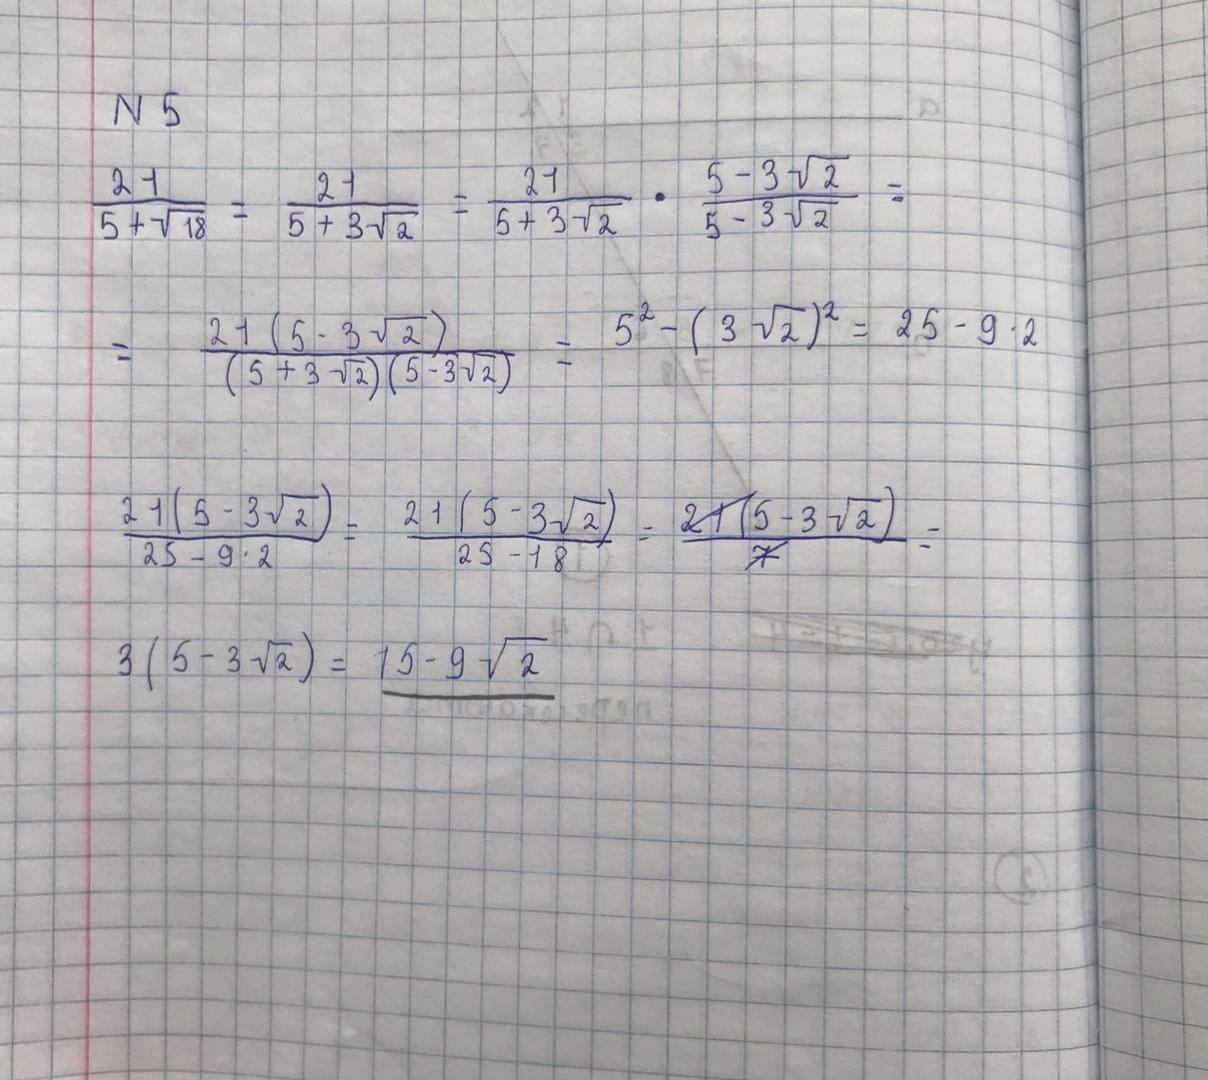 N 5
21/(5+√18) = 21/(5+3√2) = 21/(5+3√2) · (5-3√2)/(5-3√2) =
= 21(5-3√2)/((5+3√2)(5-3√2)) = 5² - (3√2)² = 25 - 9·2
21(5-3√2)/(25-9·2) = 21(5-3√2)/(25-18) = 21(5-3√2)/7 =
3(5-3√2) = 15-9√2